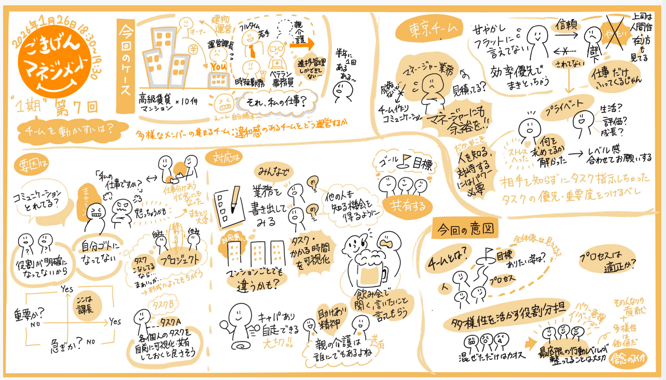 2026年1月26日 18:30-19:30
ごきげん
マネジメント
"1期" 第7回
チームを動かすには?
今回のケース
建物
運営!
オーナー
運営課長
YOU
高級賃貸
マンション ×10件
フルタイム
若手
親
介護
時短勤務
ベテラン
事務員
進捗管理
しかできて
ない
半年に
1回
あるある〜
それ、私の仕事?
多様なメンバーの集まるチーム:違和感のあるチームをどう運営するか
東京チーム
甘やかし
フラットに
言えてない
信頼
されてない
部下
上司は
人間性
在り方を
見てる
効率優先で
まきとっちゃう
仕事だけ
ふってくるじゃん
マネージャー業務
見積ってる?
チーム作り
コミュニケーション
マネージャーにも
余裕を!!
人を知る、
対峙する
にはパワー
必要
プライベート
生活?
評価?
成長?
何を
求めてるか
解かった
レベル感
合わせてお願いする
相手を知らずにタスク指示しちゃった
タスクの優先・重要度をつけるべし
要因は
コミュニケーション
とれてる?
「私の
仕事ですか?」
役割が明確に
なってないから
自分ゴトに
なってない
プロジェクト
重要か?
NO
Yes
Yes
急ぎか? NO
タスクB
タスクA
各個人のタスクを
自前に可視化・共有
しておくと良さそう
対応は
みんなで
業務を
書き出して
みる
他の人も
知る機会を
作るように
マンションごとでも
違うかも?
タスク・
かかる時間
を可視化
キャパあり
自走できる
大切!!
助け合い
精神
親の介護は
誰にでもあるよね
ゴール
目標
共有する
飲み会で
聞く、言いたいこと
言ってもらう
今回の意図
チームとは?
目標
ありたい姿は?
人
プロセス
プロセスは
適正か?
多様性を活かす役割分担
混ぜただけはカオス
最低限の行動レベルが
整ってることは大切
多様性